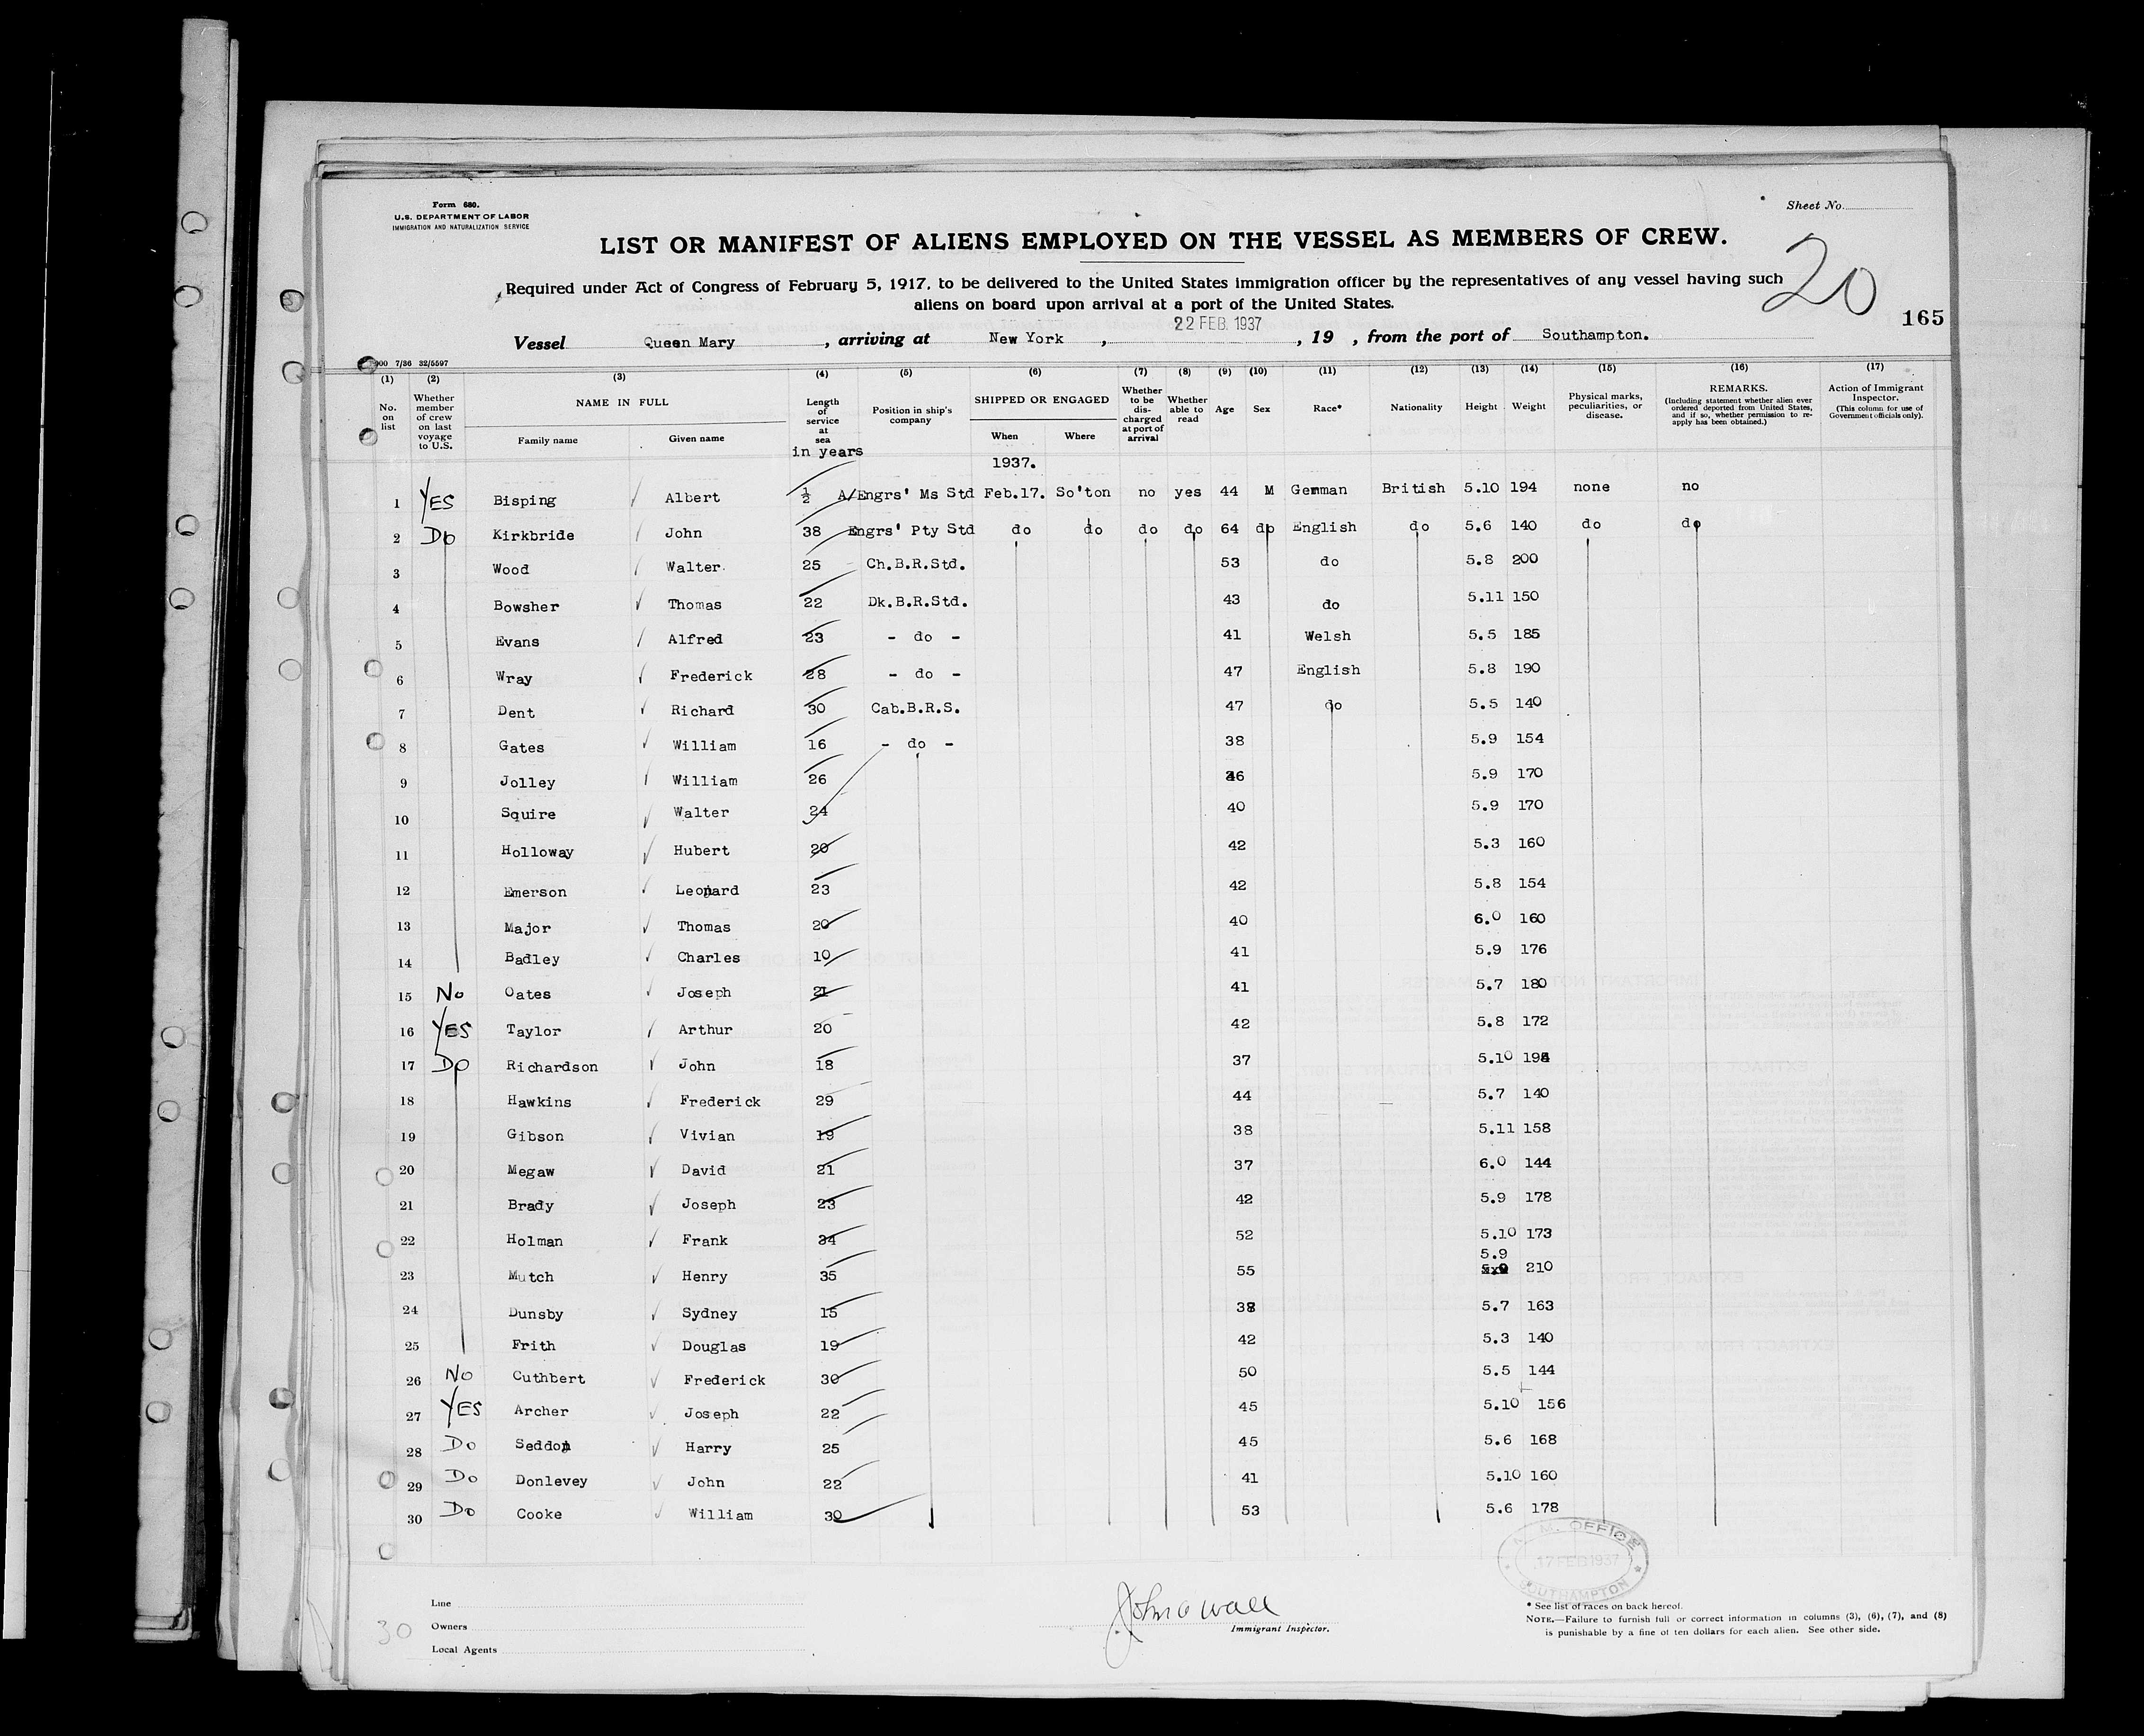 Form 680.
U.S. DEPARTMENT OF LABOR
IMMIGRATION AND NATURALIZATION SERVICE
Sheet No.
LIST OR MANIFEST OF ALIENS EMPLOYED ON THE VESSEL AS MEMBERS OF CREW.
20
Required under Act of Congress of February 5, 1917, to be delivered to the United States immigration officer by the representatives of any vessel having such
aliens on board upon arrival at a port of the United States.
165
22 FEB. 1937
Vessel Queen Mary, arriving at New York, , 19 , from the port of Southampton.
000 7/36 32/5597
(1) (2) (3) (4) (5) (6) (7) (8) (9) (10) (11) (12) (13) (14) (15) (16) (17)
No. on list
Whether member of crew on last voyage to U.S.
NAME IN FULL
Family name Given name
Length of service at sea
in years
Position in ship's company
SHIPPED OR ENGAGED
When Where
Whether to be discharged at port of arrival
Whether able to read
Age Sex Race* Nationality Height Weight
Physical marks, peculiarities, or disease.
REMARKS.
(Including statement whether alien ever ordered deported from United States, and if so, whether permission to reapply has been obtained.)
Action of Immigrant Inspector.
(This column for use of Government officials only).
1937.
1 YES Bisping Albert ½ A/Engrs' Ms Std Feb.17. So'ton no yes 44 M Gemman British 5.10 194 none no
2 Do Kirkbride John 38 Engrs' Pty Std do do do do 64 do English do 5.6 140 do do
3 Wood Walter. 25 Ch.B.R.Std. 53 do 5.8 200
4 Bowsher Thomas 22 Dk.B.R.Std. 43 do 5.11 150
5 Evans Alfred 23 - do - 41 Welsh 5.5 185
6 Wray Frederick 28 - do - 47 English 5.8 190
7 Dent Richard 30 Cab.B.R.S. 47 do 5.5 140
8 Gates William 16 - do - 38 5.9 154
9 Jolley William 26 46 5.9 170
10 Squire Walter 24 40 5.9 170
11 Holloway Hubert 20 42 5.3 160
12 Emerson Leonard 23 42 5.8 154
13 Major Thomas 20 40 6.0 160
14 Badley Charles 10 41 5.9 176
15 No Oates Joseph 21 41 5.7 180
16 YES Taylor Arthur 20 42 5.8 172
17 Do Richardson John 18 37 5.10 194
18 Hawkins Frederick 29 44 5.7 140
19 Gibson Vivian 19 38 5.11 158
20 Megaw David 21 37 6.0 144
21 Brady Joseph 23 42 5.9 178
22 Holman Frank 34 52 5.10 173
5.9
23 Mutch Henry 35 55 210
24 Dunsby Sydney 15 38 5.7 163
25 Frith Douglas 19 42 5.3 140
26 No Cuthbert Frederick 30 50 5.5 144
27 YES Archer Joseph 22 45 5.10 156
28 Do Seddon Harry 25 45 5.6 168
29 Do Donlevey John 22 41 5.10 160
30 Do Cooke William 30 53 5.6 178
M. OFFICE
17 FEB 1937
SOUTHAMPTON
Line
Owners
Local Agents
30
Immigrant Inspector.
* See list of races on back hereof.
NOTE.—Failure to furnish full or correct information in columns (3), (6), (7), and (8)
is punishable by a fine of ten dollars for each alien. See other side.